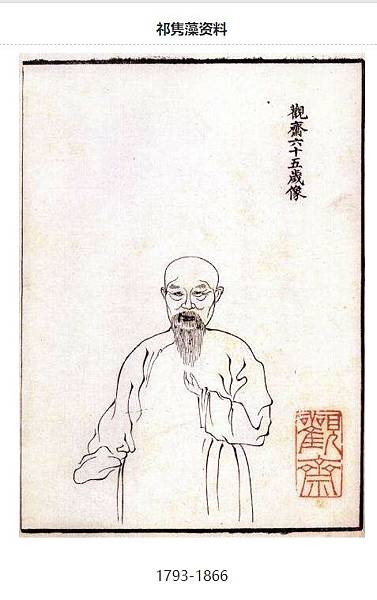 祁隽藻资料
觀齋六十五歲像
觀齋
1793-1866